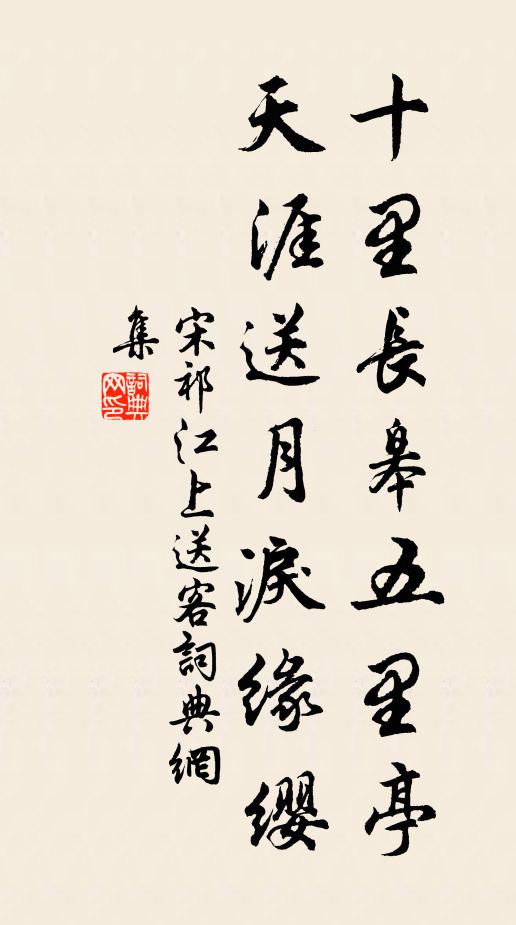 十里長皋五里亭
天涯送月淚緣纓
宋祁江上送客詞典網
集
詞典
网印